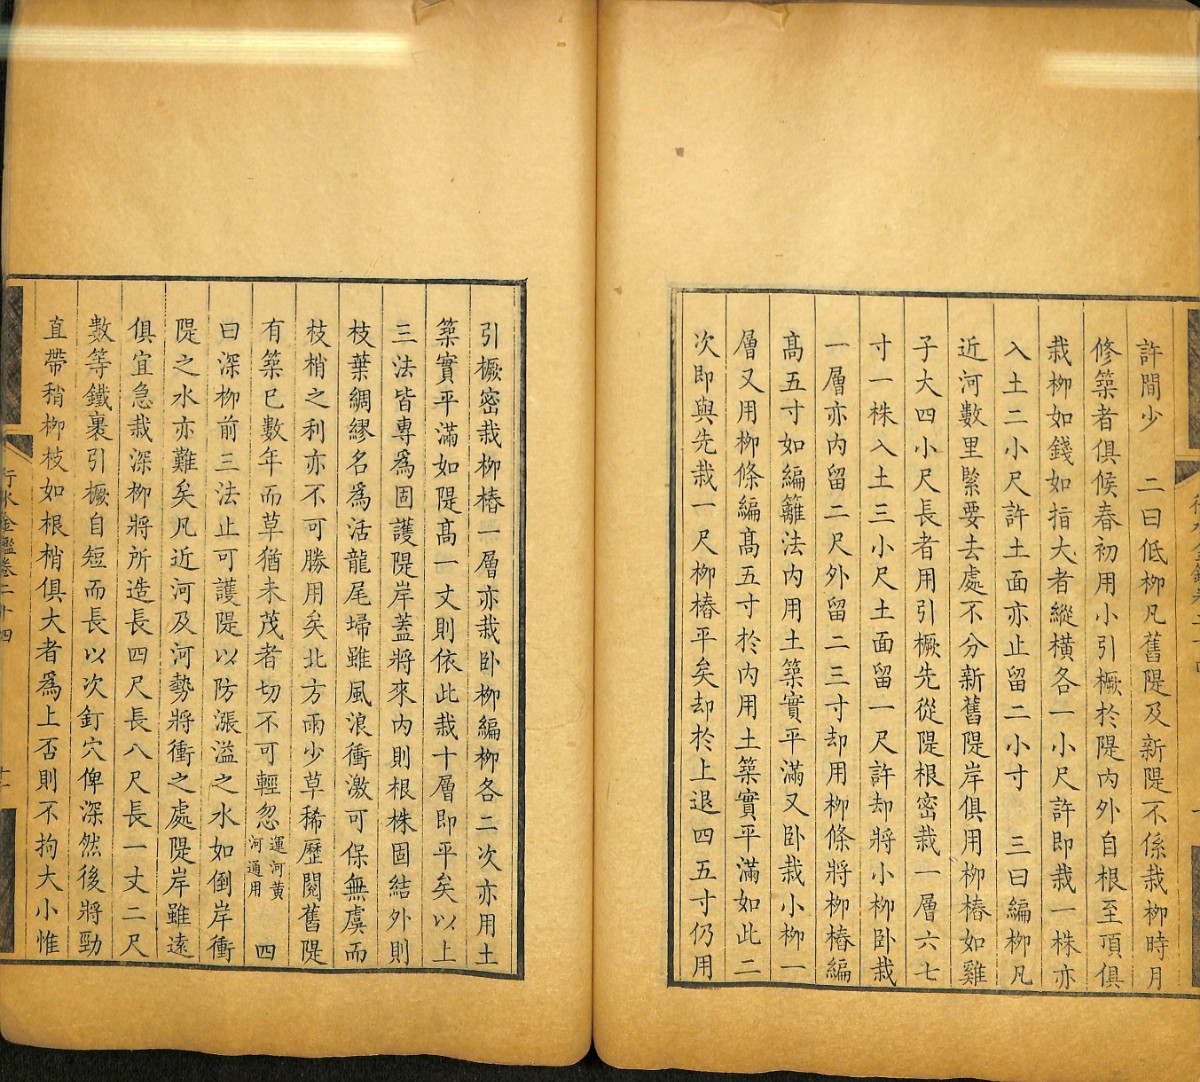 許間少　二曰低柳凡舊隄及新隄不係栽柳時月
修築者俱候春初用小引橛於隄內外自根至頂俱
栽柳如錢如指大者縱橫各一小尺許即栽一株亦
入土二小尺許土面亦止留二小寸　三曰編柳凡
近河數里緊要去處不分新舊隄岸俱用柳樁如雞
子大四小尺長者用引橛先從隄根密栽一層六七
寸一株入土三小尺土面留一尺許却將小柳卧栽
一層亦內留二尺外留二三寸却用柳條將柳樁編
高五寸如編籬法內用土築實平滿又卧栽小柳一
層又用柳條編高五寸於內用土築實平滿如此二
次即與先栽一尺柳樁平矣却於上退四五寸仍用
引橛密栽柳樁一層亦栽卧柳編柳各二次亦用土
築實平滿如隄高一丈則依此栽十層即平矣以上
三法皆專為固護隄岸蓋將來內則根株固結外則
枝葉綢繆名為活龍尾埽雖風浪衝激可保無虞而
枝梢之利亦不可勝用矣北方雨少草稀歷閱舊隄
有築已數年而草猶未茂者切不可輕忽運河黃河通用　四
曰深柳前三法止可護隄以防漲溢之水如倒岸衝
隄之水亦難矣凡近河及河勢將衝之處隄岸雖遠
俱宜急栽深柳將所造長四尺長八尺長一丈二尺
數等鐵裹引橛自短而長以次釘穴俾深然後將勁
直帶稍柳枝如根梢俱大者為上否則不拘大小惟
行水金鑑卷二十四